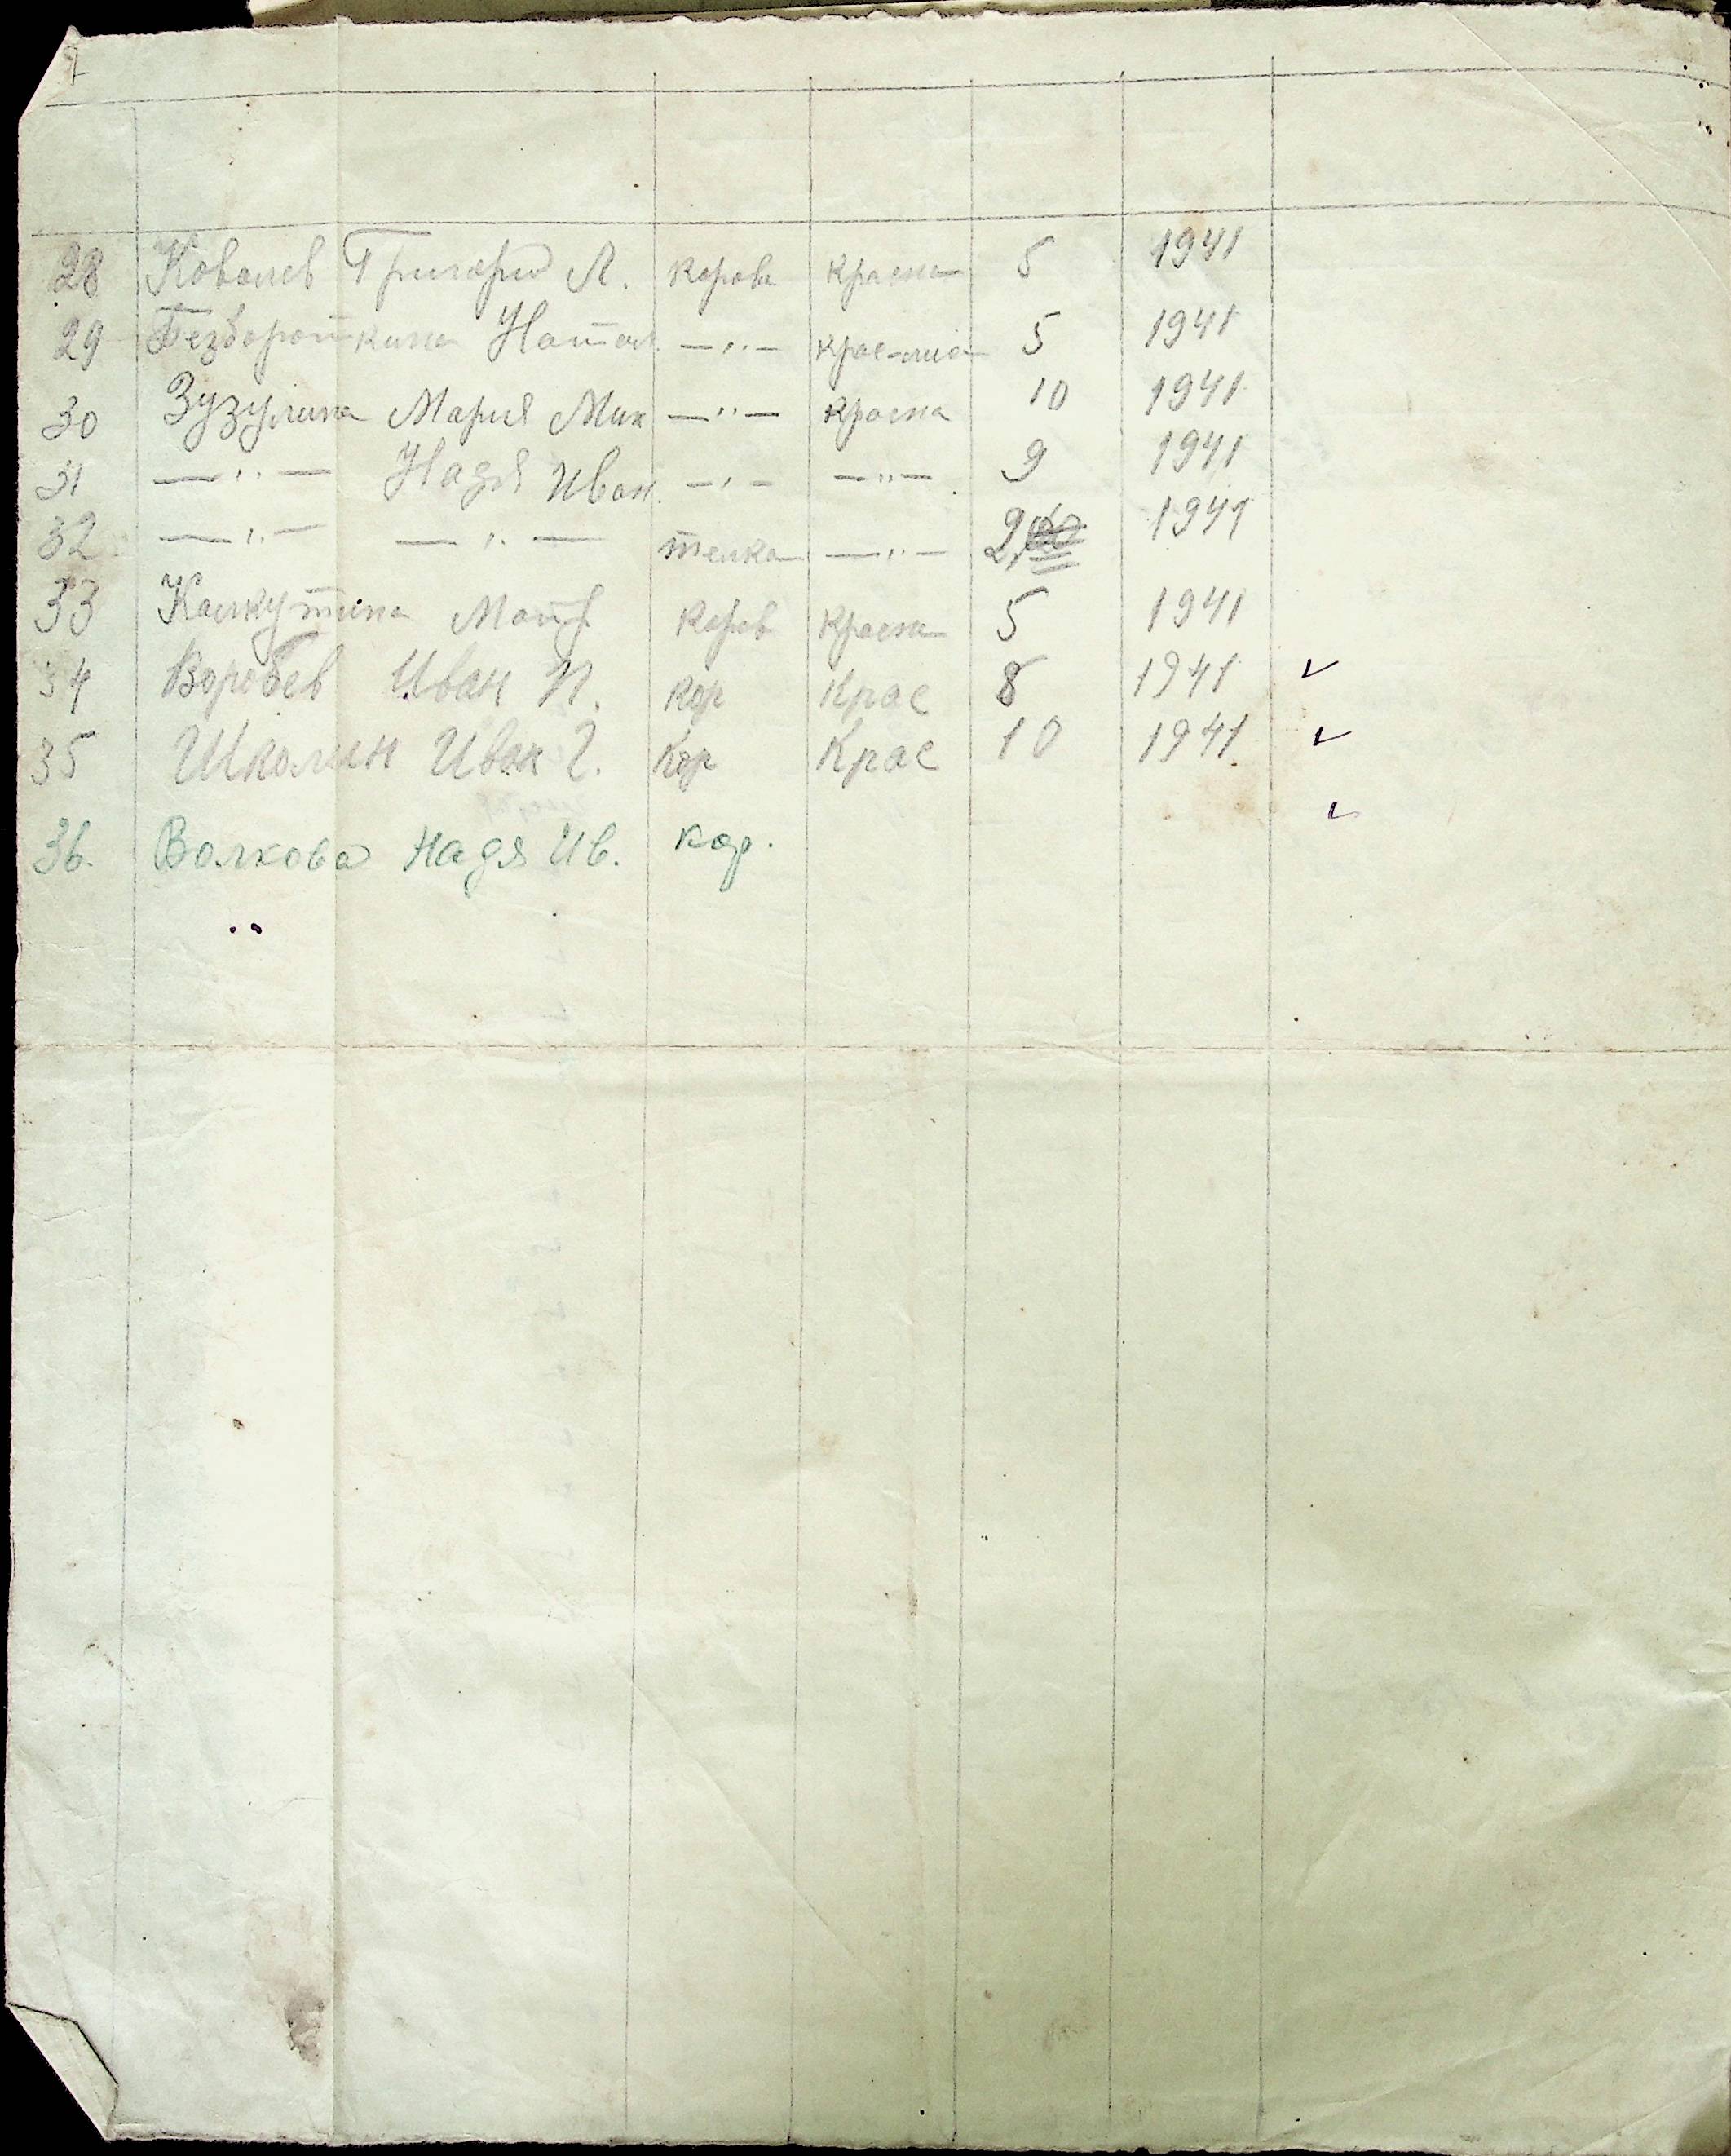 28 Ковалев Григорий А. корова красна 5 1941
29 Безбороткина Натал. —"— крас- 5 1941
30 Зузулина Мария Мик —"— красна 10 1941
31 —"— Надя Иван. —"— —"— 9 1941
32 —"— —"— телка —"— 2, 1941
33 Калкутина Матр коров красна 5 1941
34 Воробев Иван П. кор крас 8 1941 ✓
35 Школин Иван Г. кор крас 10 1941 ✓
✓
36. Волкова Надя Ив. кор.